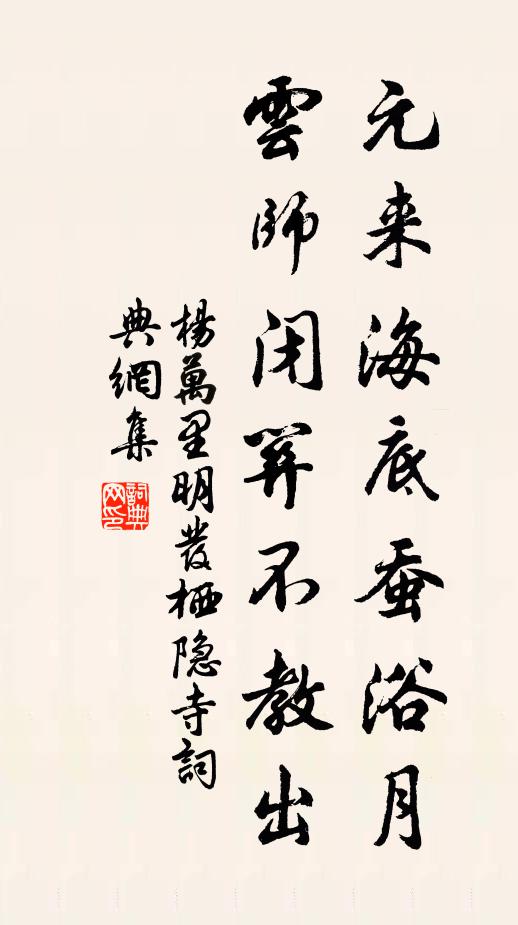 元来海底蚕浴月
雲師闭羿不教出
楊萬里明發栖隐寺詞
典網集
詞典
网印